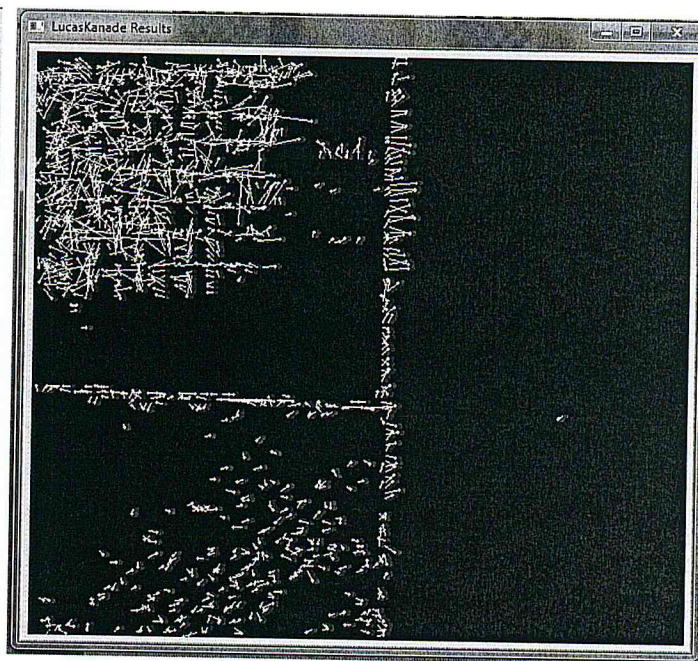 LucasKanade Results